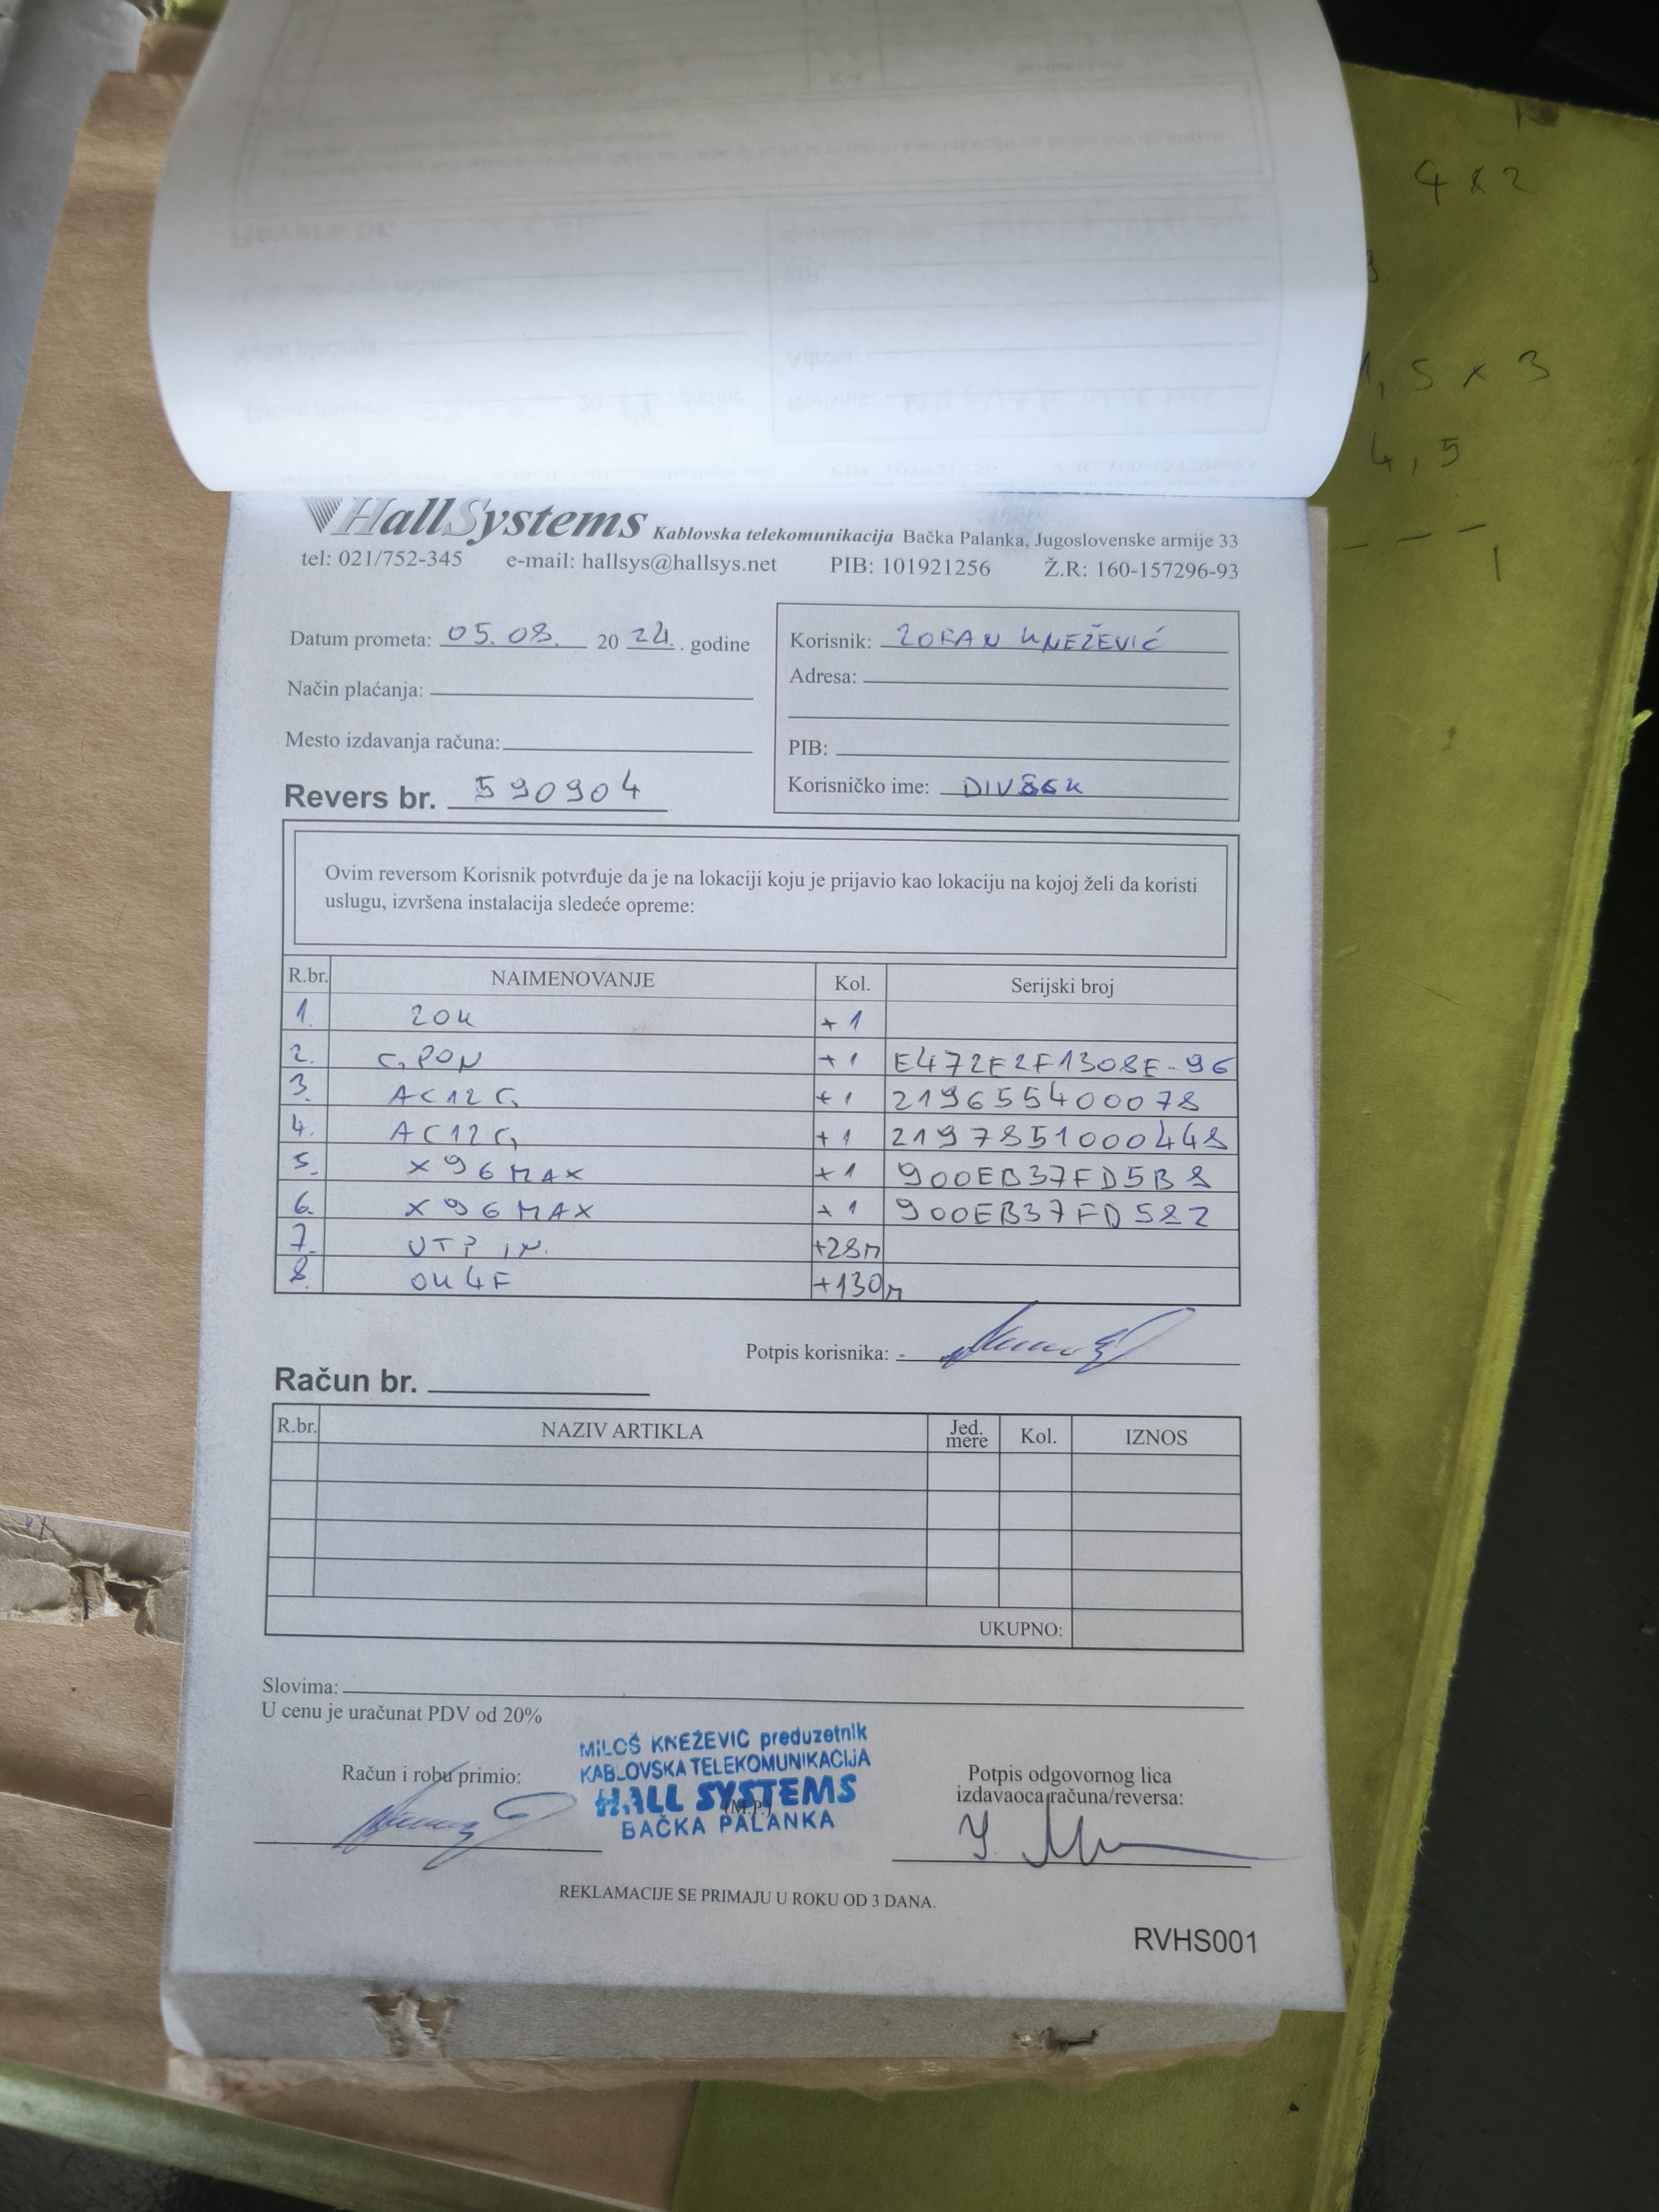 HallSystems Kablovska telekomunikacija Bačka Palanka, Jugoslovenske armije 33
tel: 021/752-345 e-mail: hallsys@hallsys.net PIB: 101921256 Ž.R: 160-157296-93
Datum prometa: 05.08. 20 24. . godine
Način plaćanja:
Mesto izdavanja računa:
Revers br. 590904
Korisnik: ZORAN KNEŽEVIĆ
Adresa:
PIB:
Korisničko ime:
Ovim reversom Korisnik potvrđuje da je na lokaciji koju je prijavio kao lokaciju na kojoj želi da koristi
uslugu, izvršena instalacija sledeće opreme:
R.br. NAIMENOVANJE Kol. Serijski broj
1. ZOK +1
2. GPON +1 E472E2F1308E-96
3. AC12G +1 219655400078
4. AC12G +1 2197851000448
5. X96MAX +1 900EB37FD5B8
6. X96MAX +1 900EB37FD582
7. UTP IN. +28m
8. OK4F +130m
Potpis korisnika:
Račun br.
R.br. NAZIV ARTIKLA Jed. mere Kol. IZNOS
UKUPNO:
Slovima:
U cenu je uračunat PDV od 20%
MILOŠ KNEŽEVIĆ preduzetnik
KABLOVSKA TELEKOMUNIKACIJA
HALL SYSTEMS
(M.P.)
BAČKA PALANKA
Račun i robu primio:
Potpis odgovornog lica
izdavaoca računa/reversa:
REKLAMACIJE SE PRIMAJU U ROKU OD 3 DANA.
RVHS001
4 x 2
1,5 x 3
4,5